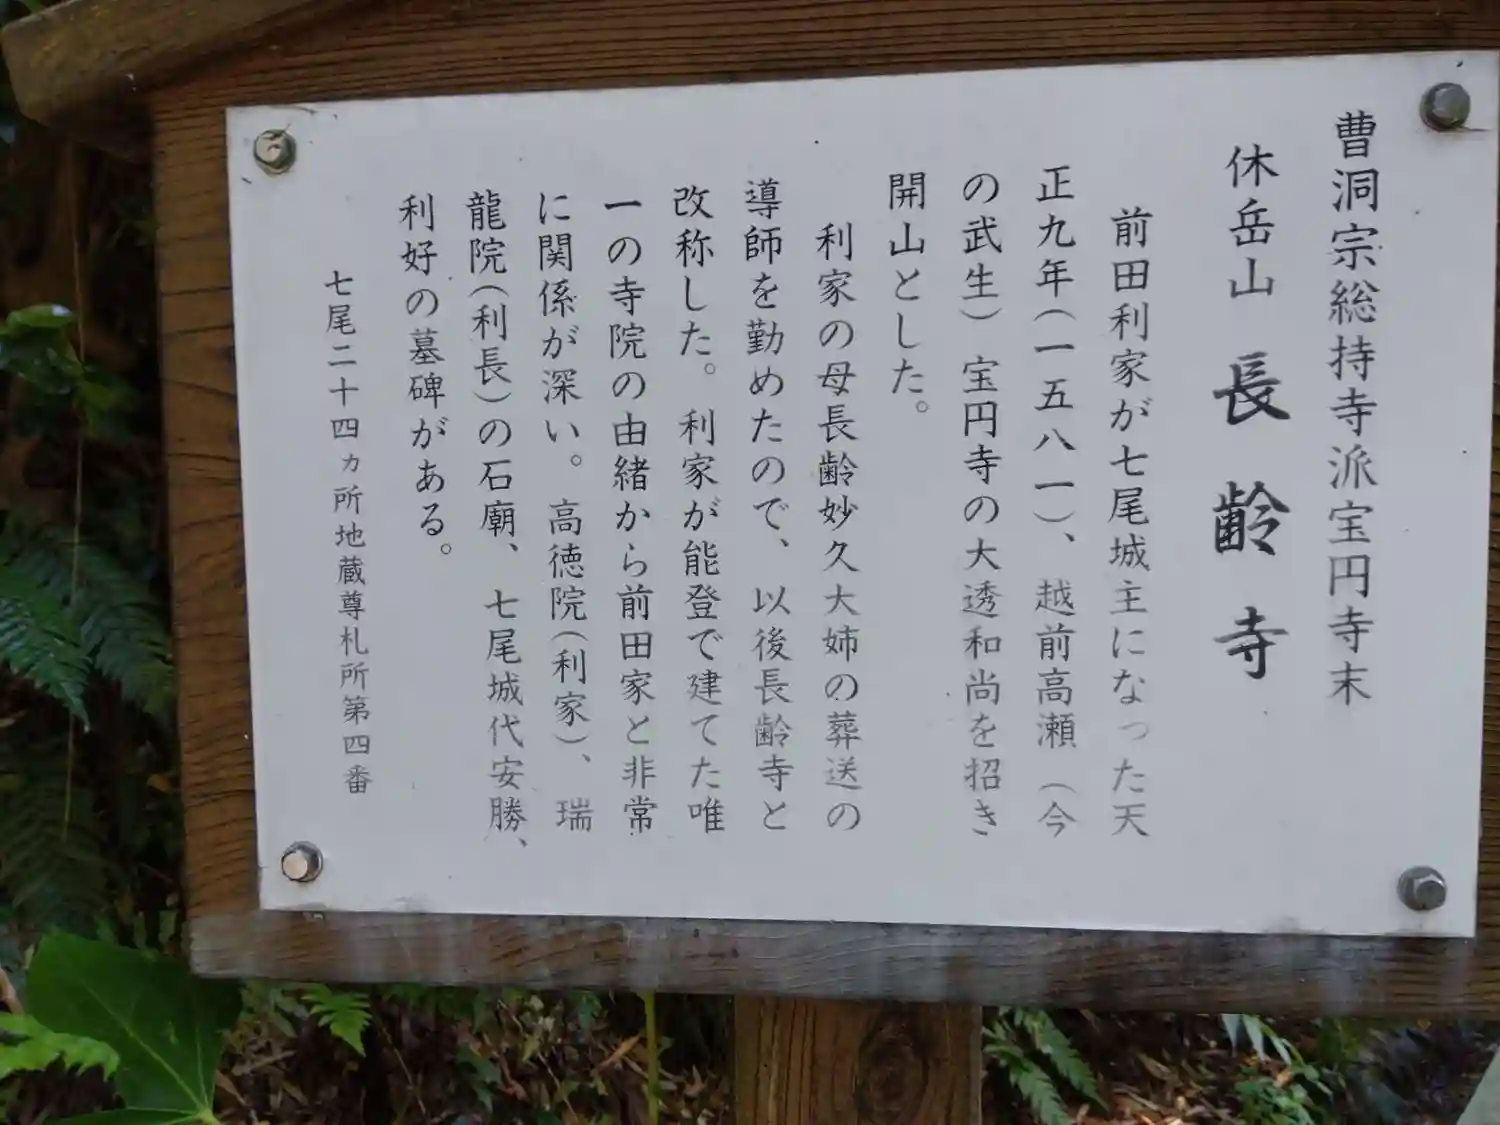 曹洞宗総持寺派宝円寺末
休岳山 長齢寺
前田利家が七尾城主になった天
正九年(一五八一)、越前高瀬(今
の武生)宝円寺の大透和尚を招き
開山とした。
利家の母長齢妙久大姉の葬送の
導師を勤めたので、以後長齢寺と
改称した。利家が能登で建てた唯
一の寺院の由緒から前田家と非常
に関係が深い。高徳院(利家)、瑞
龍院(利長)の石廟、七尾城代安勝、
利好の墓碑がある。
七尾二十四ヵ所地蔵尊札所第四番